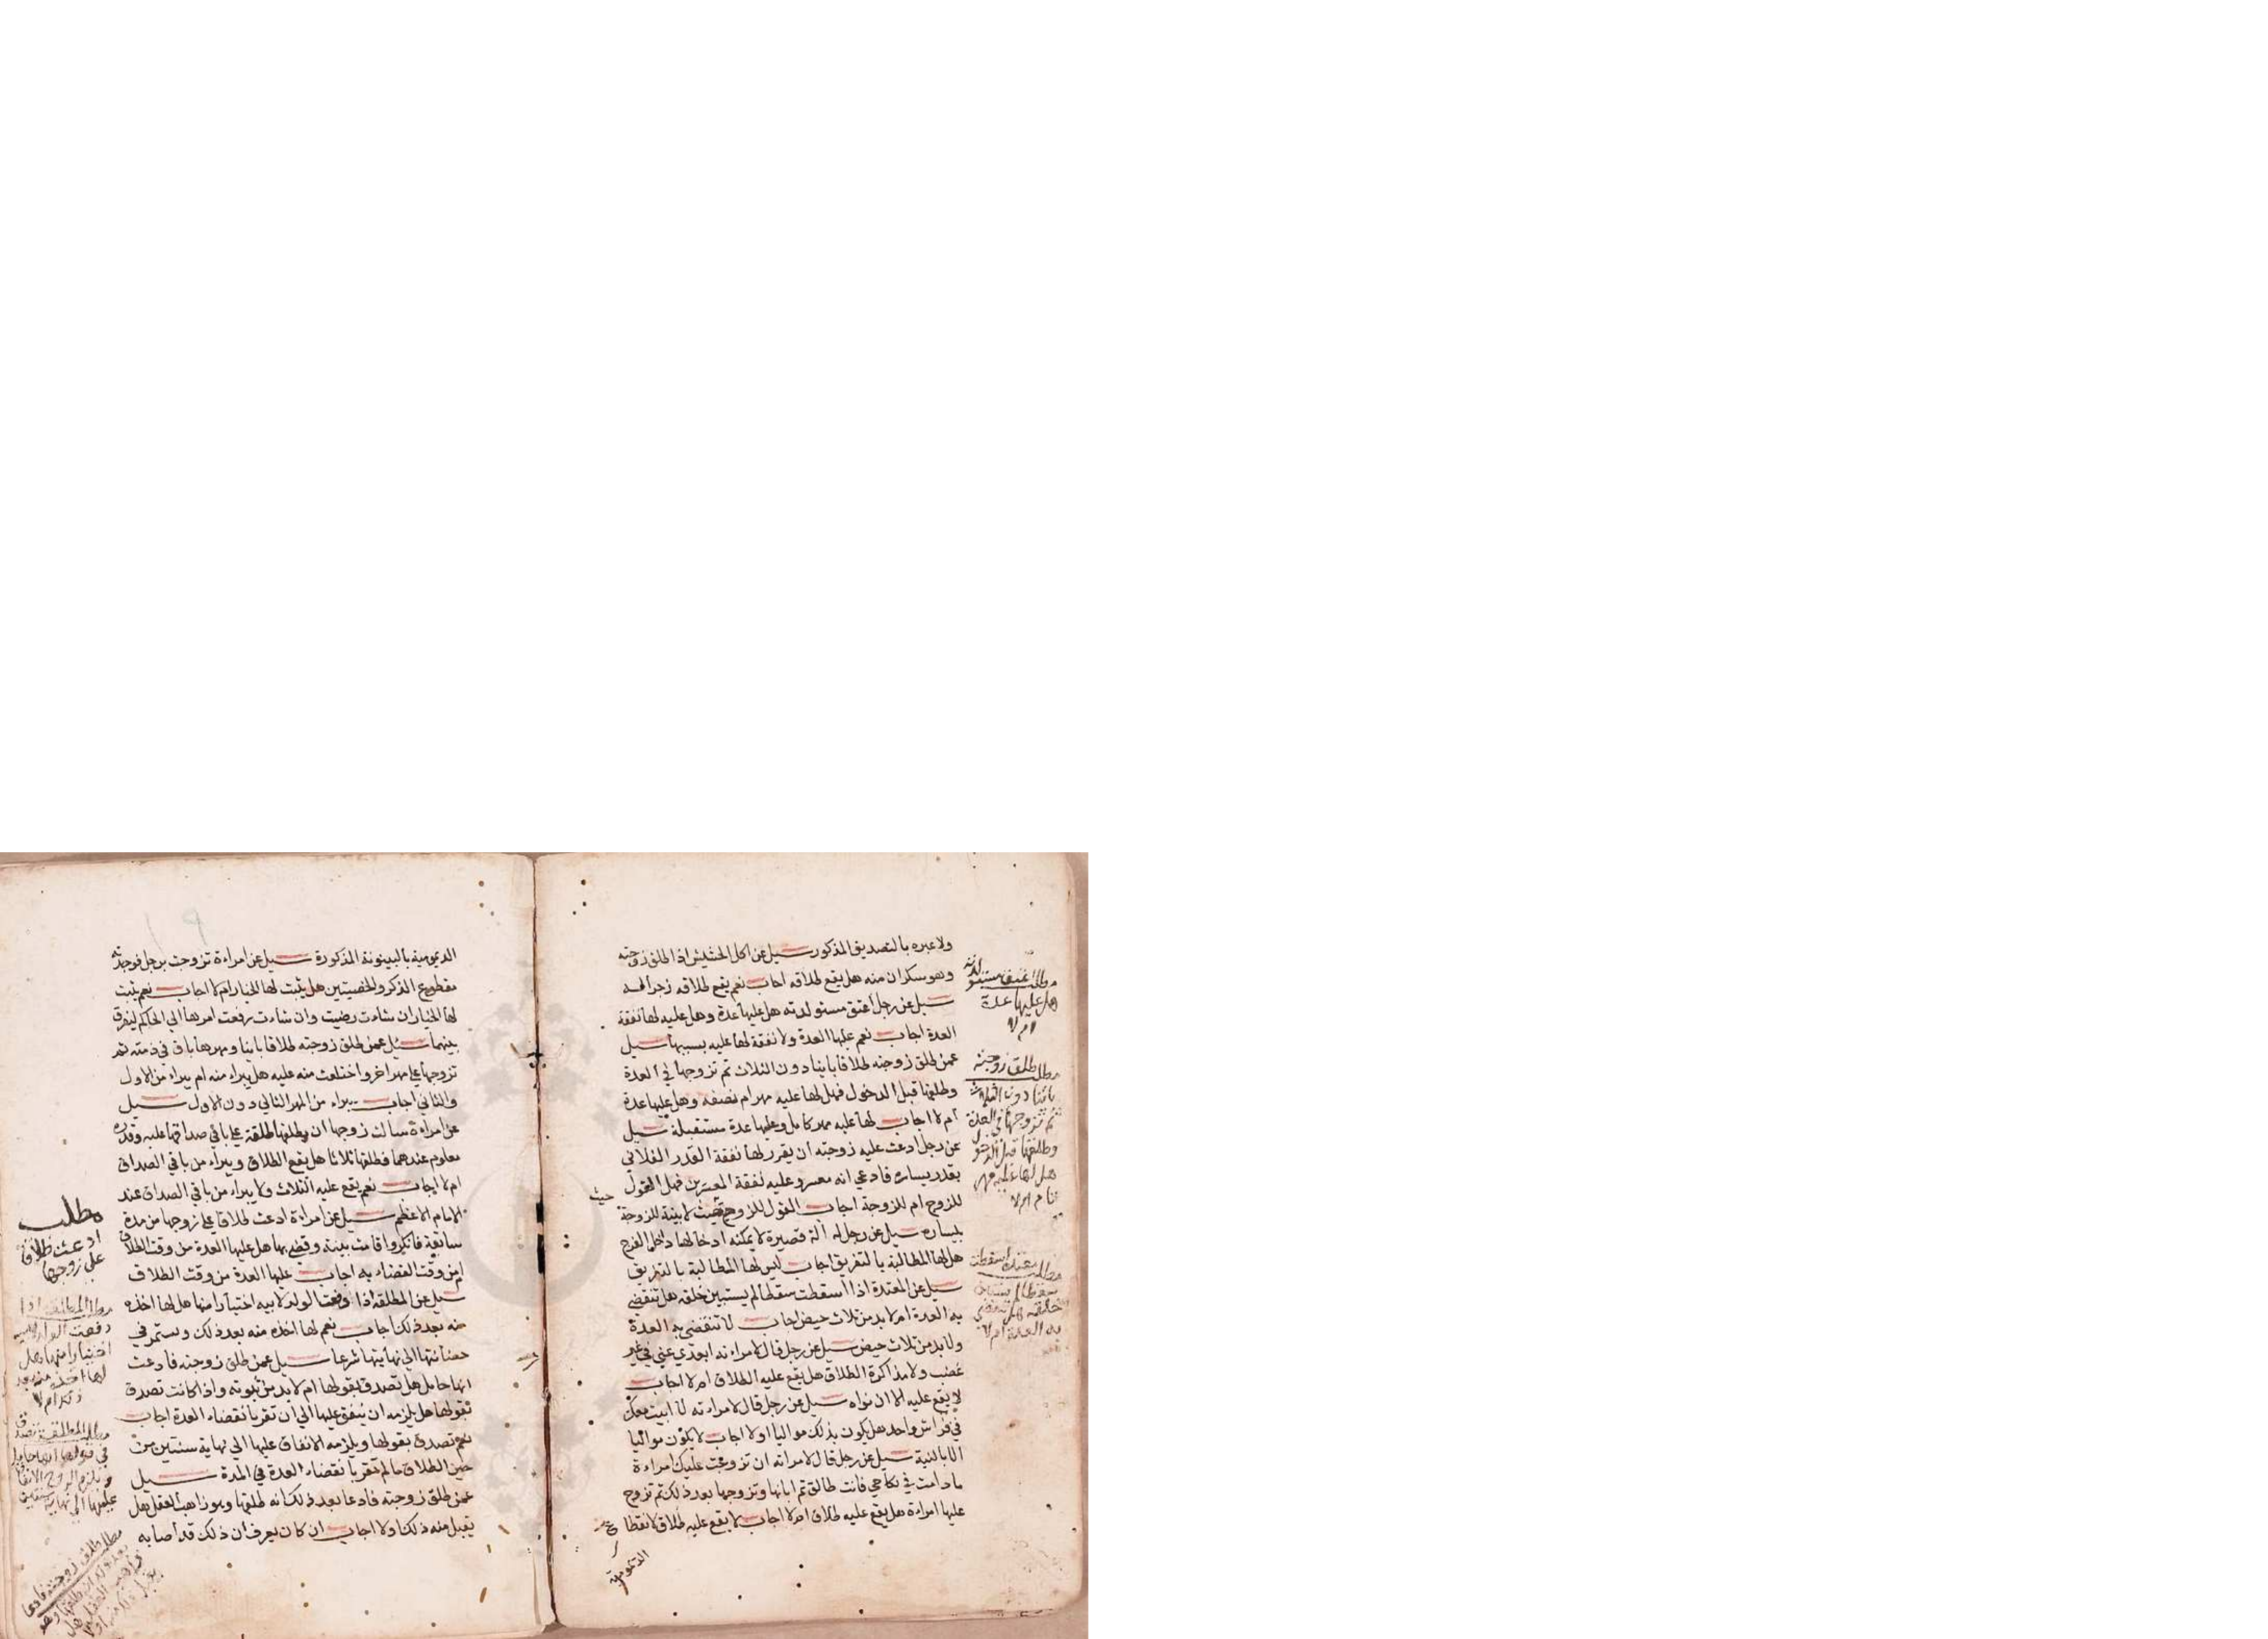 ولا عبره بالتصديق المذكور سيل عن اكل الحشيش اذا طلق زوجته
وهو سكران منه هل يقع طلاقه اجاب نعم يقع طلاقه زجرا له
سيل عن رجل اعتق مستولدته هل عليها عدة وهل عليه لها نفقة
العدة اجاب نعم عليها العدة ولا نفقة لها عليه بسببها سيل
عمن طلق زوجته طلاقا باينا دون الثلاث ثم تزوجها في العدة
وطلقها قبل الدخول فهل لها عليه مهر ام نصفه وهل عليها عدة
ام لا اجاب لها عليه مهر كامل وعليها عدة مستقبلة سيل
عن رجل ادعت عليه زوجته ان يقرر لها نفقة القدر الفلاني
بقدر يساره فادعي انه معسر وعليه نفقة المعسرين فهل القول
للزوج ام للزوجة اجاب القول للزوج حيث لا بينة للزوجة
بيساره سيل عن رجل له آلة قصيرة لا يمكنه ادخالها داخل الفرج
هل لها المطالبة بالتفريق اجاب ليس لها المطالبة بالتفريق
سيل عن المعتدة اذا اسقطت سقطا لم يستبين خلقه هل تنقضي
به العدة ام لا بد من ثلاث حيض اجاب لا تنقضي به العدة
ولا بد من ثلاث حيض سيل عن رجل قال لامراته ابعدي عني في غير
غضب ولا مذاكرة الطلاق هل يقع عليه الطلاق ام لا اجاب
لا يقع عليه الا ان نواه سيل عن رجل قال لامراءته لا ابيت معك
في فراش واحد هل يكون بذلك مواليا اولا اجاب لا يكون مواليا
الا بالنية سيل عن رجل قال لامراته ان تزوجت عليك امراءة
ما دامت في نكاحي فانت طالق ثم ابانها وتزوجها بعد ذلك ثم تزوج
عليها امراءة هل يقع عليه طلاق ام لا اجاب لا يقع عليه طلاق لانقطا
الديمومية
مطلب اعتق مستولدته
هل عليها عدة
ام لا
مطلب طلق زوجته
باينا دون الثلاث
ثم تزوجها في العدة
وطلقها قبل الدخول
هل لها عليه مهر
تام ام لا
مطلب معتدة اسقطت
سقطا لم يستبين
خلقه هل تنقضي
به العدة ام لا
الديمومية بالبينونة المذكورة سيل عن امراءة تزوجت برجل فوجدته
مقطوع الذكر والخصيتين هل يثبت لها الخيار ام لا اجاب نعم يثبت
لها الخيار ان شاءت رضيت وان شاءت رفعت امرها الي الحاكم ليفرق
بينهما سيل عمن طلق زوجته طلاقا باينا ومهرها باق في ذمته ثم
تزوجها علي مهر اخر واختلعت منه عليه هل يبراء منه ام يبراء من الاول
والثاني اجاب يبراء من المهر الثاني دون الاول سيل
عن امراءة سالت زوجها ان يطلقها طلقة علي باقي صداقها عليه وقدره
معلوم عندهما فطلقها ثلاثا هل يقع الطلاق ويبراء من باقي الصداق
ام لا اجاب نعم يقع عليه الثلاث ولا يبراء من باقي الصداق عند
الامام الاعظم سيل عن امراءة ادعت طلاقا علي زوجها من مدة
سابقة فانكر واقامت بينة وقضي بها هل عليها العدة من وقت الطلاق
ام من وقت القضاء به اجاب عليها العدة من وقت الطلاق
سيل عن المطلقة اذا دفعت الولد لابيه اختيارا منها هل لها اخذه
منه بعد ذلك اجاب نعم لها اخذه منه بعد ذلك ويستمر في
حضانتها الي نهايتها شرعا سيل عمن طلق زوجته فادعت
انها حامل هل تصدق بقولها ام لا بد من ثبوته واذا كانت تصدق
بقولها هل يلزمه ان ينفق عليها الي ان تقر بانقضاء العدة اجاب
نعم تصدق بقولها ويلزمه الانفاق عليها الي نهاية سنتين من
حين الطلاق ما لم تقر بانقضاء العدة في المدة سيل
عمن طلق زوجته فادعا بعد ذلك انه طلقها وهو زاهب العقل هل
يقبل منه ذلك اولا اجاب ان كان يعرف ان ذلك قد اصابه
مطلب
ادعت طلاقا
علي زوجها
مطلب المطلقة اذا
دفعت الولد لابيه
اختيارا منها هل
لها اخذه منه بعد
ذلك ام لا
مطلب المطلقة تصدق
في قولها انها حامل
ويلزم الزوج الانفاق
عليها الي نهاية سنتين
مطلب طلق زوجته فادعا
بعد ذلك انه طلقها وهو
زاهب العقل هل
يقبل ذلك منه اولا